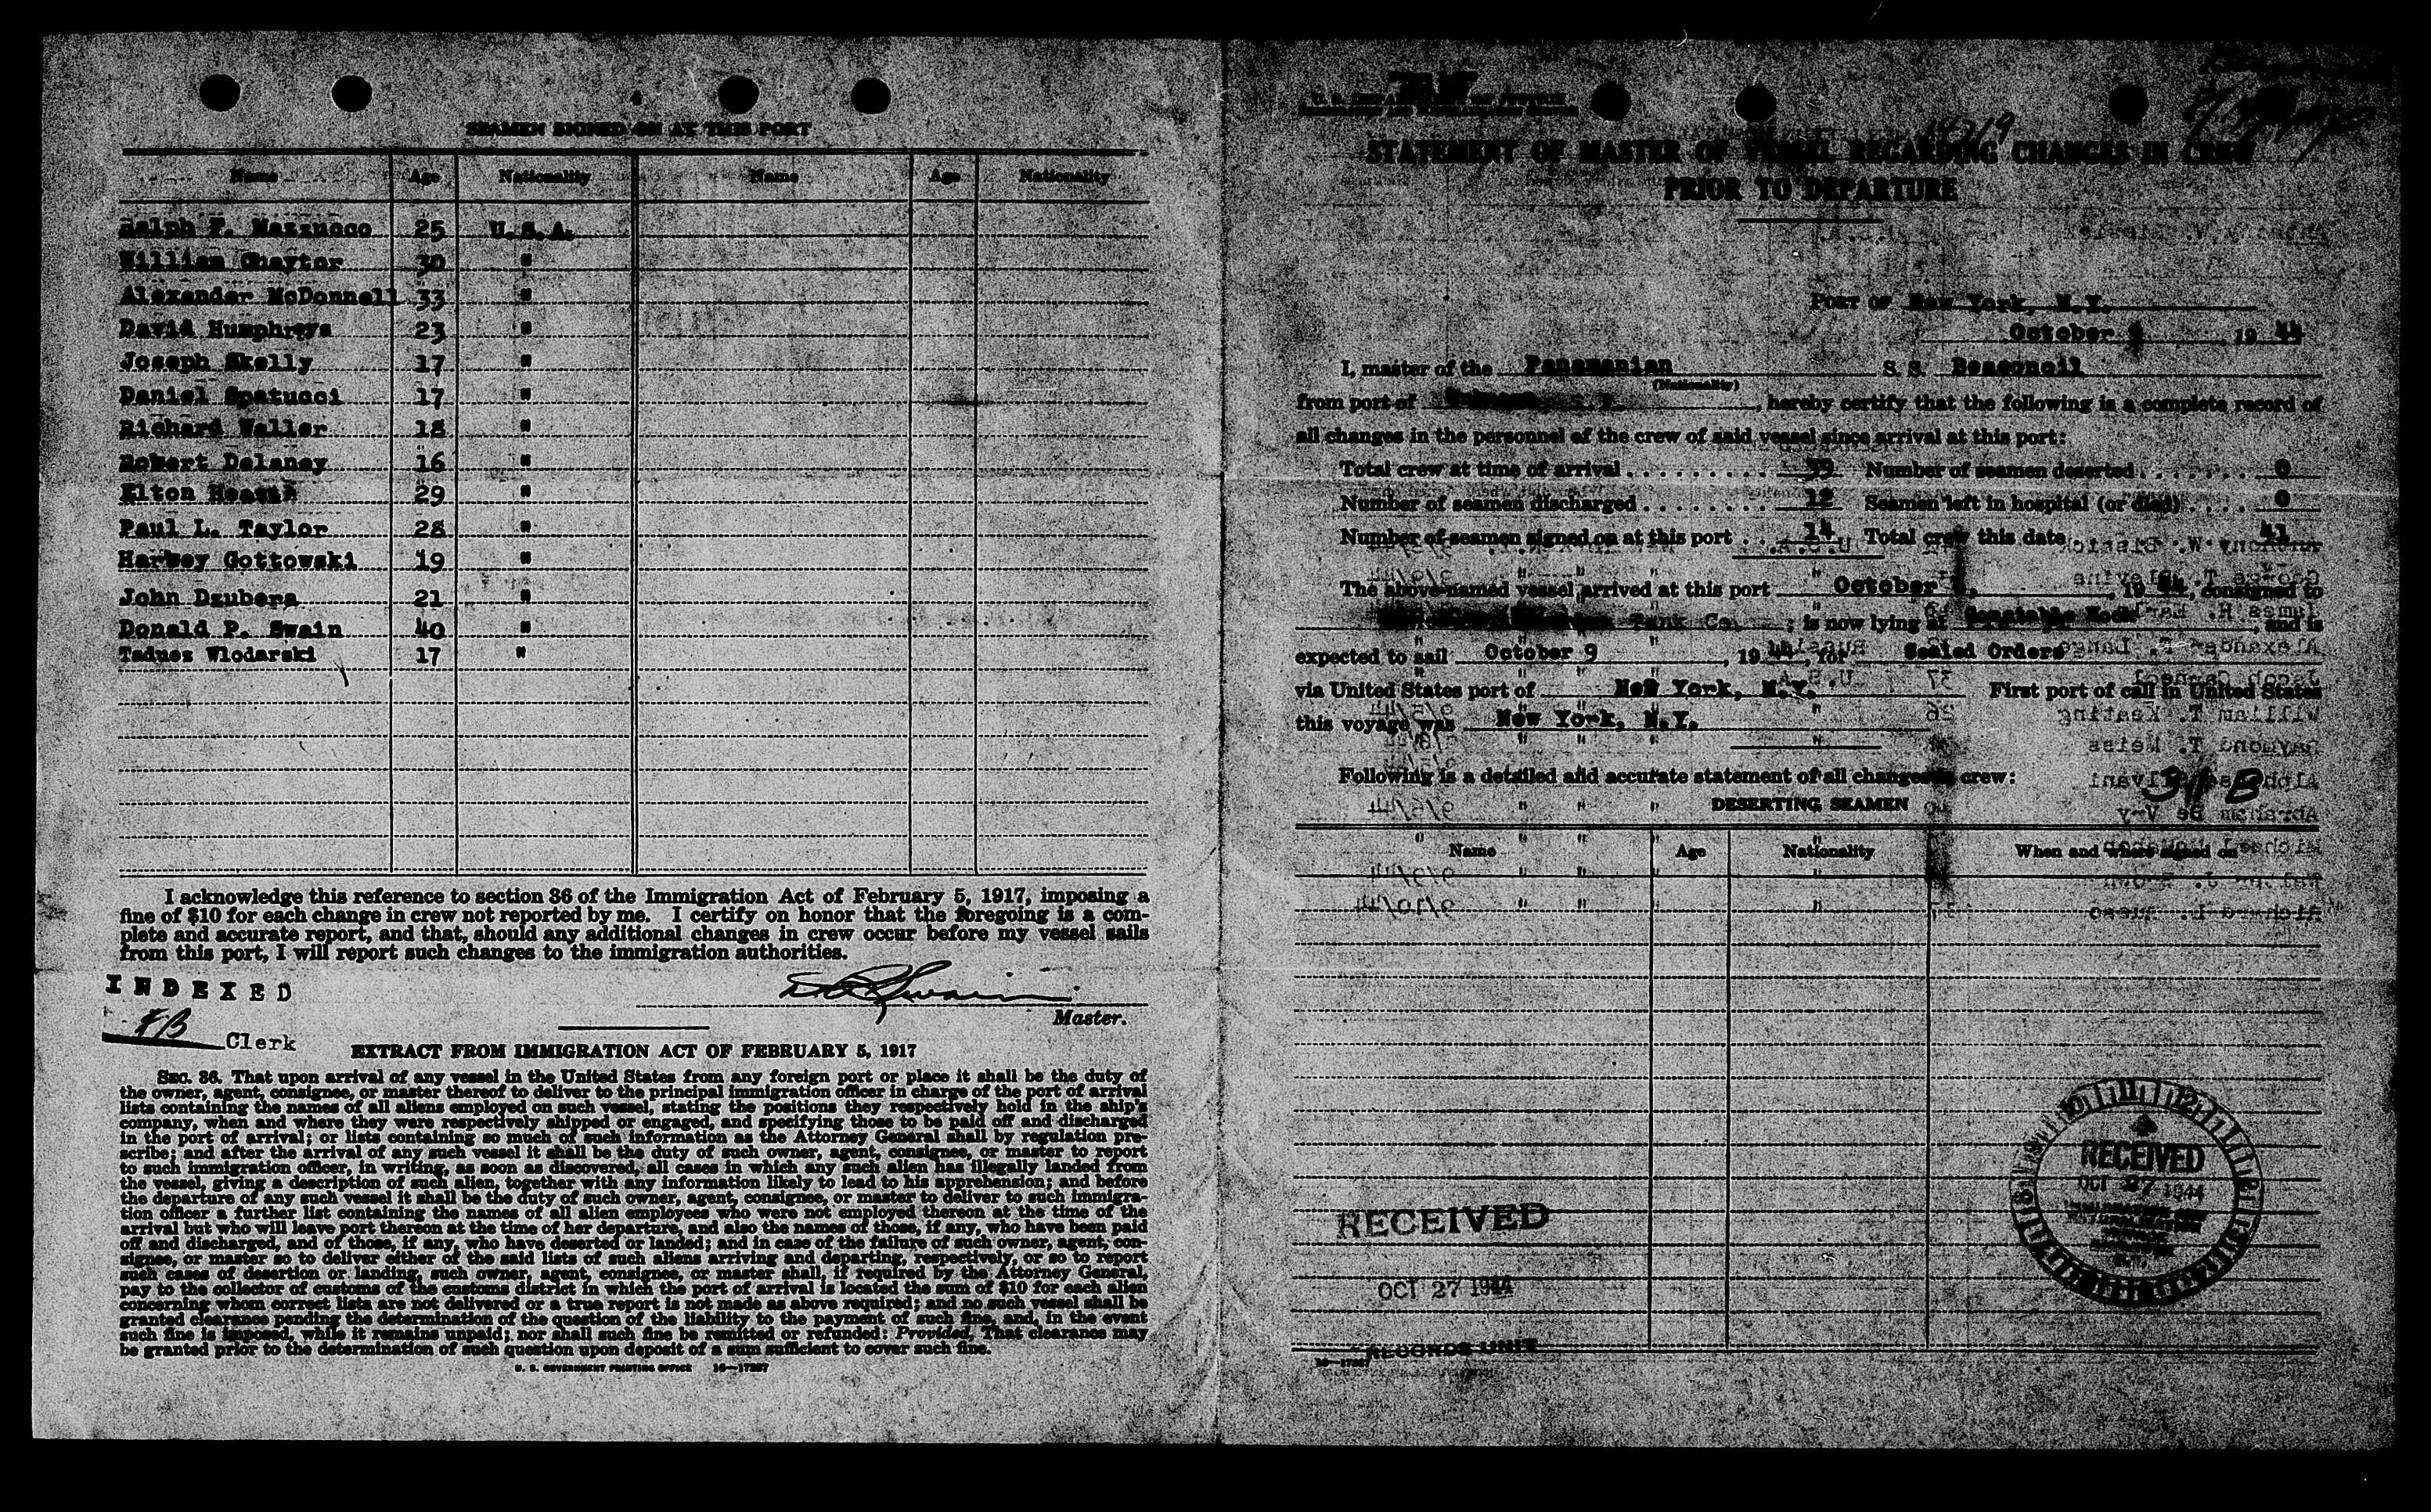 4
SEAMEN SIGNED ON AT THIS PORT
Name Age Nationality Name Age Nationality
Ralph F. Mazzucco 25 U.S.A.
William Chaytor 30 "
Alexander McDonnell 33 "
David Humphreys 23 "
Joseph Skelly 17 "
Daniel Spatucci 17 "
Richard Waller 18 "
Robert Delaney 16 "
Elton 29 "
Paul L. Taylor 28 "
Harvey Gottowski 19 "
John Dzubera 21 "
Donald P. Swain 40 "
Taduez Wlodarski 17 "
I acknowledge this reference to section 36 of the Immigration Act of February 5, 1917, imposing a
fine of $10 for each change in crew not reported by me. I certify on honor that the foregoing is a com-
plete and accurate report, and that, should any additional changes in crew occur before my vessel sails
from this port, I will report such changes to the immigration authorities.
INDEXED
Clerk
D P Swain
Master.
EXTRACT FROM IMMIGRATION ACT OF FEBRUARY 5, 1917
SEC. 36. That upon arrival of any vessel in the United States from any foreign port or place it shall be the duty of
the owner, agent, consignee, or master thereof to deliver to the principal immigration officer in charge of the port of arrival
lists containing the names of all aliens employed on such vessel, stating the positions they respectively hold in the ship's
company, when and where they were respectively shipped or engaged, and specifying those to be paid off and discharged
in the port of arrival; or lists containing so much of such information as the Attorney General shall by regulation pre-
scribe; and after the arrival of any such vessel it shall be the duty of such owner, agent, consignee, or master to report
to such immigration officer, in writing, as soon as discovered, all cases in which any such alien has illegally landed from
the vessel, giving a description of such alien, together with any information likely to lead to his apprehension; and before
the departure of any such vessel it shall be the duty of such owner, agent, consignee, or master to deliver to such immigra-
tion officer a further list containing the names of all alien employees who were not employed thereon at the time of the
arrival but who will leave port thereon at the time of her departure, and also the names of those, if any, who have been paid
off and discharged, and of those, if any, who have deserted or landed; and in case of the failure of such owner, agent, con-
signee, or master so to deliver either of the said lists of such aliens arriving and departing, respectively, or so to report
such cases of desertion or landing, such owner, agent, consignee, or master shall, if required by the Attorney General,
pay to the collector of customs of the customs district in which the port of arrival is located the sum of $10 for each alien
concerning whom correct lists are not delivered or a true report is not made as above required; and no such vessel shall be
granted clearance pending the determination of the question of the liability to the payment of such fine, and, in the event
such fine is imposed, while it remains unpaid; nor shall such fine be remitted or refunded: Provided, That clearance may
be granted prior to the determination of such question upon deposit of a sum sufficient to cover such fine.
U. S. GOVERNMENT PRINTING OFFICE 16—17207
14719
STATEMENT OF MASTER OF VESSEL REGARDING CHANGES IN CREW
PRIOR TO DEPARTURE
PORT OF New York, N.Y.
October 1944
I, master of the Panamanian S. S. Beaconoil
(Nationality)
from port of , hereby certify that the following is a complete record of
all changes in the personnel of the crew of said vessel since arrival at this port:
Total crew at time of arrival 39 Number of seamen deserted 0
Number of seamen discharged 12 Seamen left in hospital (or died) 0
Number of seamen signed on at this port 14 Total crew this date 41
The above-named vessel arrived at this port October , 1944, consigned to
Tank Co. ; is now lying at Constable Hook , and is
expected to sail October 9 , 1944, for Sealed Orders
via United States port of New York, N.Y. First port of call in United States
this voyage was New York, N.Y.
Following is a detailed and accurate statement of all changes in crew:
31B
DESERTING SEAMEN
Name Age Nationality When and where signed on
RECEIVED
OCT 27 1944
RECORDS UNIT
RECEIVED
OCT 27 1944